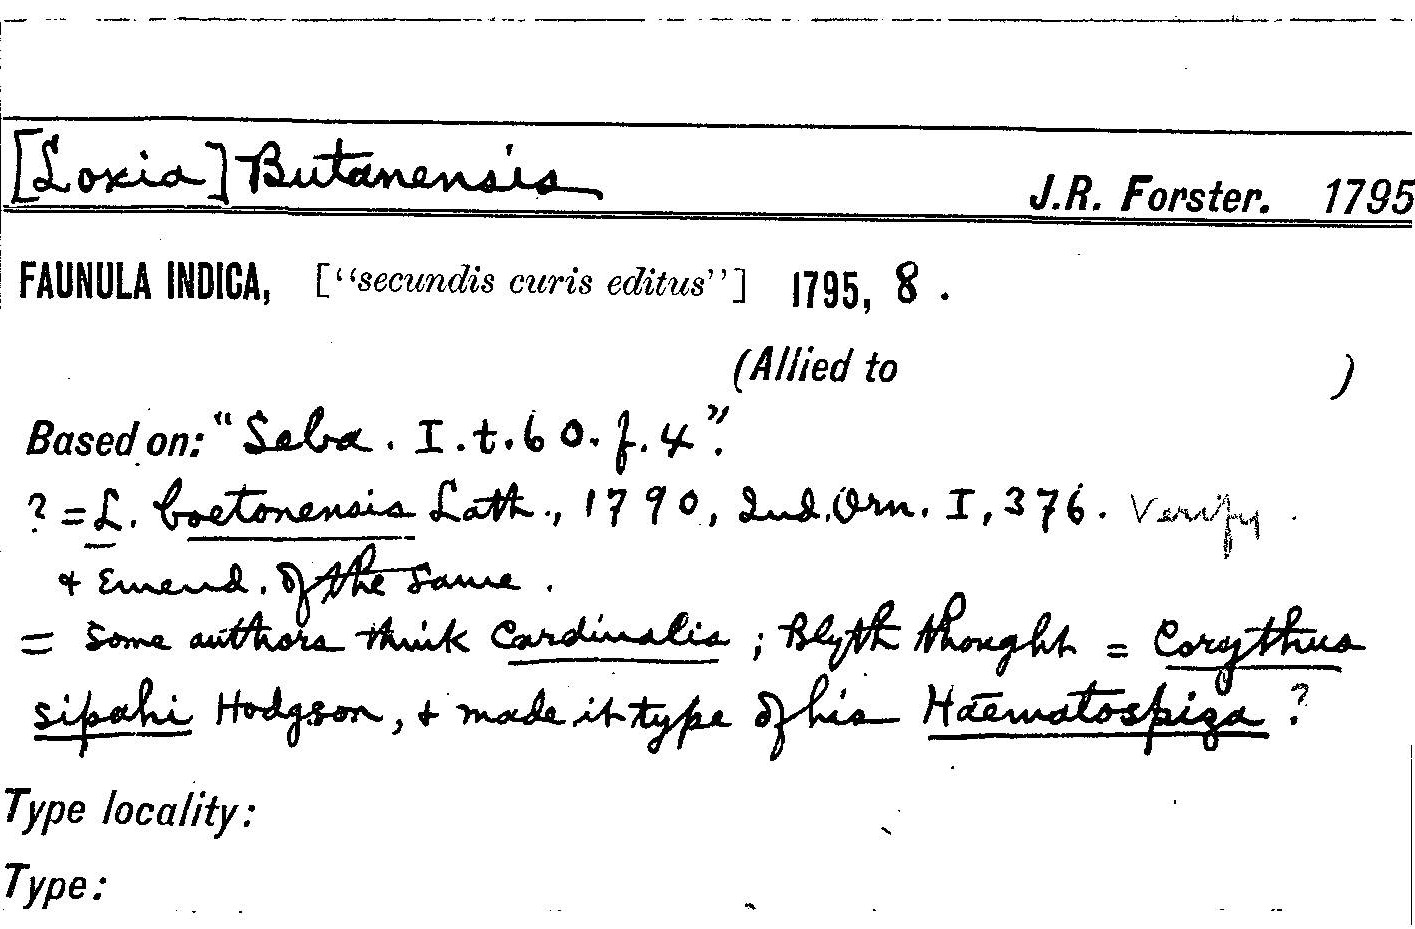 [Loxia] Butanensis J.R. Forster. 1795
FAUNULA INDICA, ["secundis curis editus"] 1795, 8.
(Allied to )
Based on: "Seba. I.t.60.f.4".
? = L. boetonensis Lath., 1790, Ind. Orn. I, 376. Verify.
& Emend. of the same.
= Some authors think Cardinalis; Blyth thought = Corythus
sipahi Hodgson, & made it type of his Haematospiza ?
Type locality:
Type: